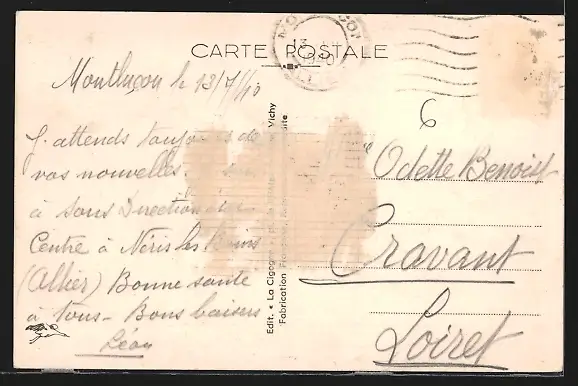 CARTE POSTALE
Montluçon le 13/7/40
J'attends toujours de
vos nouvelles.
à Sous Direction du
Centre à Néris les Bains
(Allier) Bonne santé
à tous - Bons baisers
Léon
Edit. « La Cigogne » Vichy
Fabrication
6
Odette Benoist
Cravant
Loiret
13
1940